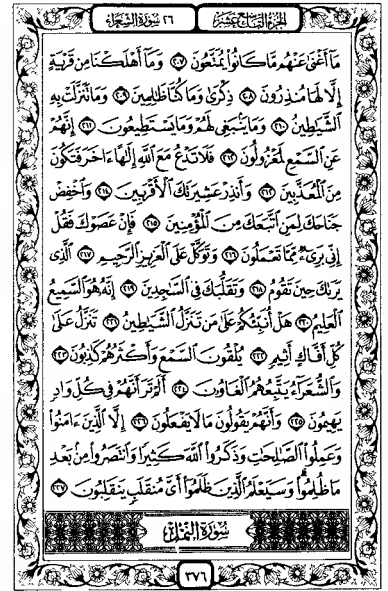 الجزء التاسع عشر
٢٦ سورة الشعراء
مَآ أَغْنَىٰ عَنْهُم مَّا كَانُوا۟ يُمَتَّعُونَ ٢٠٧ وَمَآ أَهْلَكْنَا مِن قَرْيَةٍ
إِلَّا لَهَا مُنذِرُونَ ٢٠٨ ذِكْرَىٰ وَمَا كُنَّا ظَٰلِمِينَ ٢٠٩ وَمَا تَنَزَّلَتْ بِهِ
ٱلشَّيَٰطِينُ ٢١٠ وَمَا يَنۢبَغِى لَهُمْ وَمَا يَسْتَطِيعُونَ ٢١١ إِنَّهُمْ
عَنِ ٱلسَّمْعِ لَمَعْزُولُونَ ٢١٢ فَلَا تَدْعُ مَعَ ٱللَّهِ إِلَٰهًا ءَاخَرَ فَتَكُونَ
مِنَ ٱلْمُعَذَّبِينَ ٢١٣ وَأَنذِرْ عَشِيرَتَكَ ٱلْأَقْرَبِينَ ٢١٤ وَٱخْفِضْ
جَنَاحَكَ لِمَنِ ٱتَّبَعَكَ مِنَ ٱلْمُؤْمِنِينَ ٢١٥ فَإِنْ عَصَوْكَ فَقُلْ
إِنِّى بَرِىٓءٌ مِّمَّا تَعْمَلُونَ ٢١٦ وَتَوَكَّلْ عَلَى ٱلْعَزِيزِ ٱلرَّحِيمِ ٢١٧ ٱلَّذِى
يَرَىٰكَ حِينَ تَقُومُ ٢١٨ وَتَقَلُّبَكَ فِى ٱلسَّٰجِدِينَ ٢١٩ إِنَّهُۥ هُوَ ٱلسَّمِيعُ
ٱلْعَلِيمُ ٢٢٠ هَلْ أُنَبِّئُكُمْ عَلَىٰ مَن تَنَزَّلُ ٱلشَّيَٰطِينُ ٢٢١ تَنَزَّلُ عَلَىٰ
كُلِّ أَفَّاكٍ أَثِيمٍ ٢٢٢ يُلْقُونَ ٱلسَّمْعَ وَأَكْثَرُهُمْ كَٰذِبُونَ ٢٢٣
وَٱلشُّعَرَآءُ يَتَّبِعُهُمُ ٱلْغَاوُۥنَ ٢٢٤ أَلَمْ تَرَ أَنَّهُمْ فِى كُلِّ وَادٍ
يَهِيمُونَ ٢٢٥ وَأَنَّهُمْ يَقُولُونَ مَا لَا يَفْعَلُونَ ٢٢٦ إِلَّا ٱلَّذِينَ ءَامَنُوا۟
وَعَمِلُوا۟ ٱلصَّٰلِحَٰتِ وَذَكَرُوا۟ ٱللَّهَ كَثِيرًا وَٱنتَصَرُوا۟ مِنۢ بَعْدِ
مَا ظُلِمُوا۟ وَسَيَعْلَمُ ٱلَّذِينَ ظَلَمُوٓا۟ أَىَّ مُنقَلَبٍ يَنقَلِبُونَ ٢٢٧
سورة النمل
٣٧٦